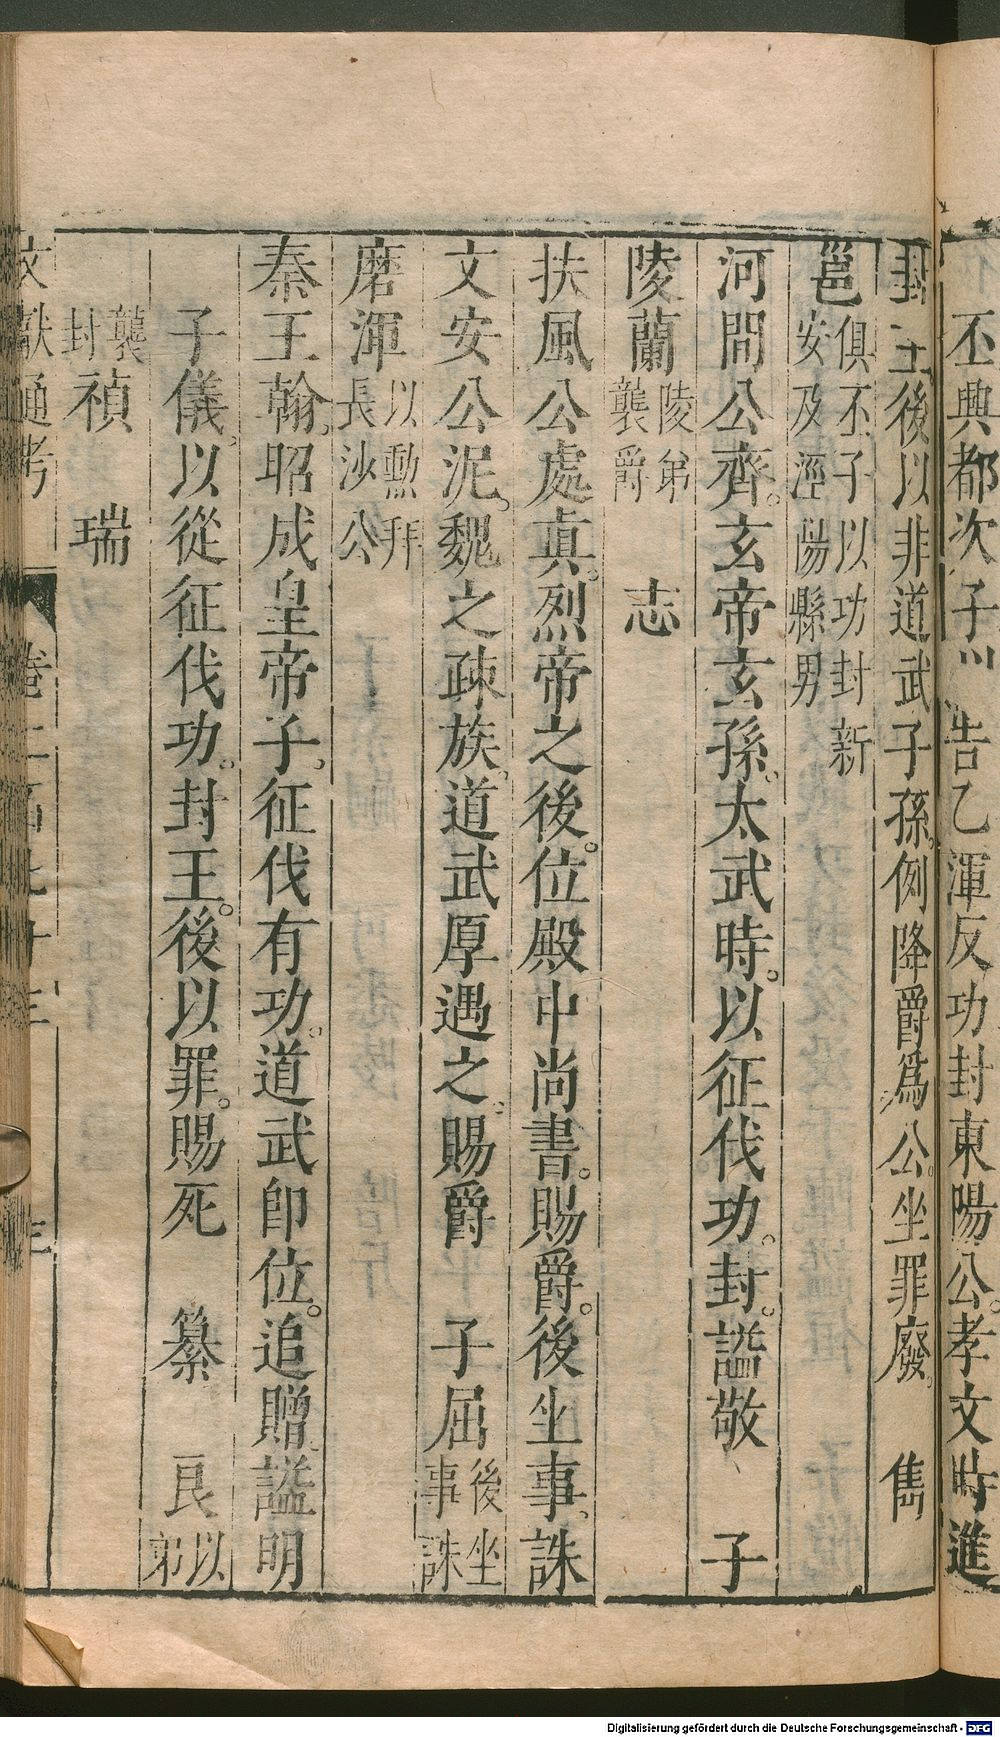 丕興都次子 告乙渾反功封東陽公。孝文時進
封王後以非道武子孫。例降爵爲公。坐罪廢。 雋
邕俱不子以功封新
安及涇陽縣男
河間公齊。玄帝玄孫。太武時。以征伐功。封。謚敬、 子
陵蘭陵弟
襲爵 志
扶風公處真。烈帝之後。位殿中尚書。賜爵。後坐事、誅
文安公泥。魏之疎族。道武厚遇之。賜爵 子屈後坐
事誅
磨渾以勲拜
長沙公
秦王翰。昭成皇帝子、征伐有功。道武卽位。追贈謚明
子儀。以從征伐功。封王。後以罪。賜死 纂 良以
弟
襲
封禎 瑞
文獻通考 卷二百七十三 三
Digitalisierung gefördert durch die Deutsche Forschungsgemeinschaft - DFG